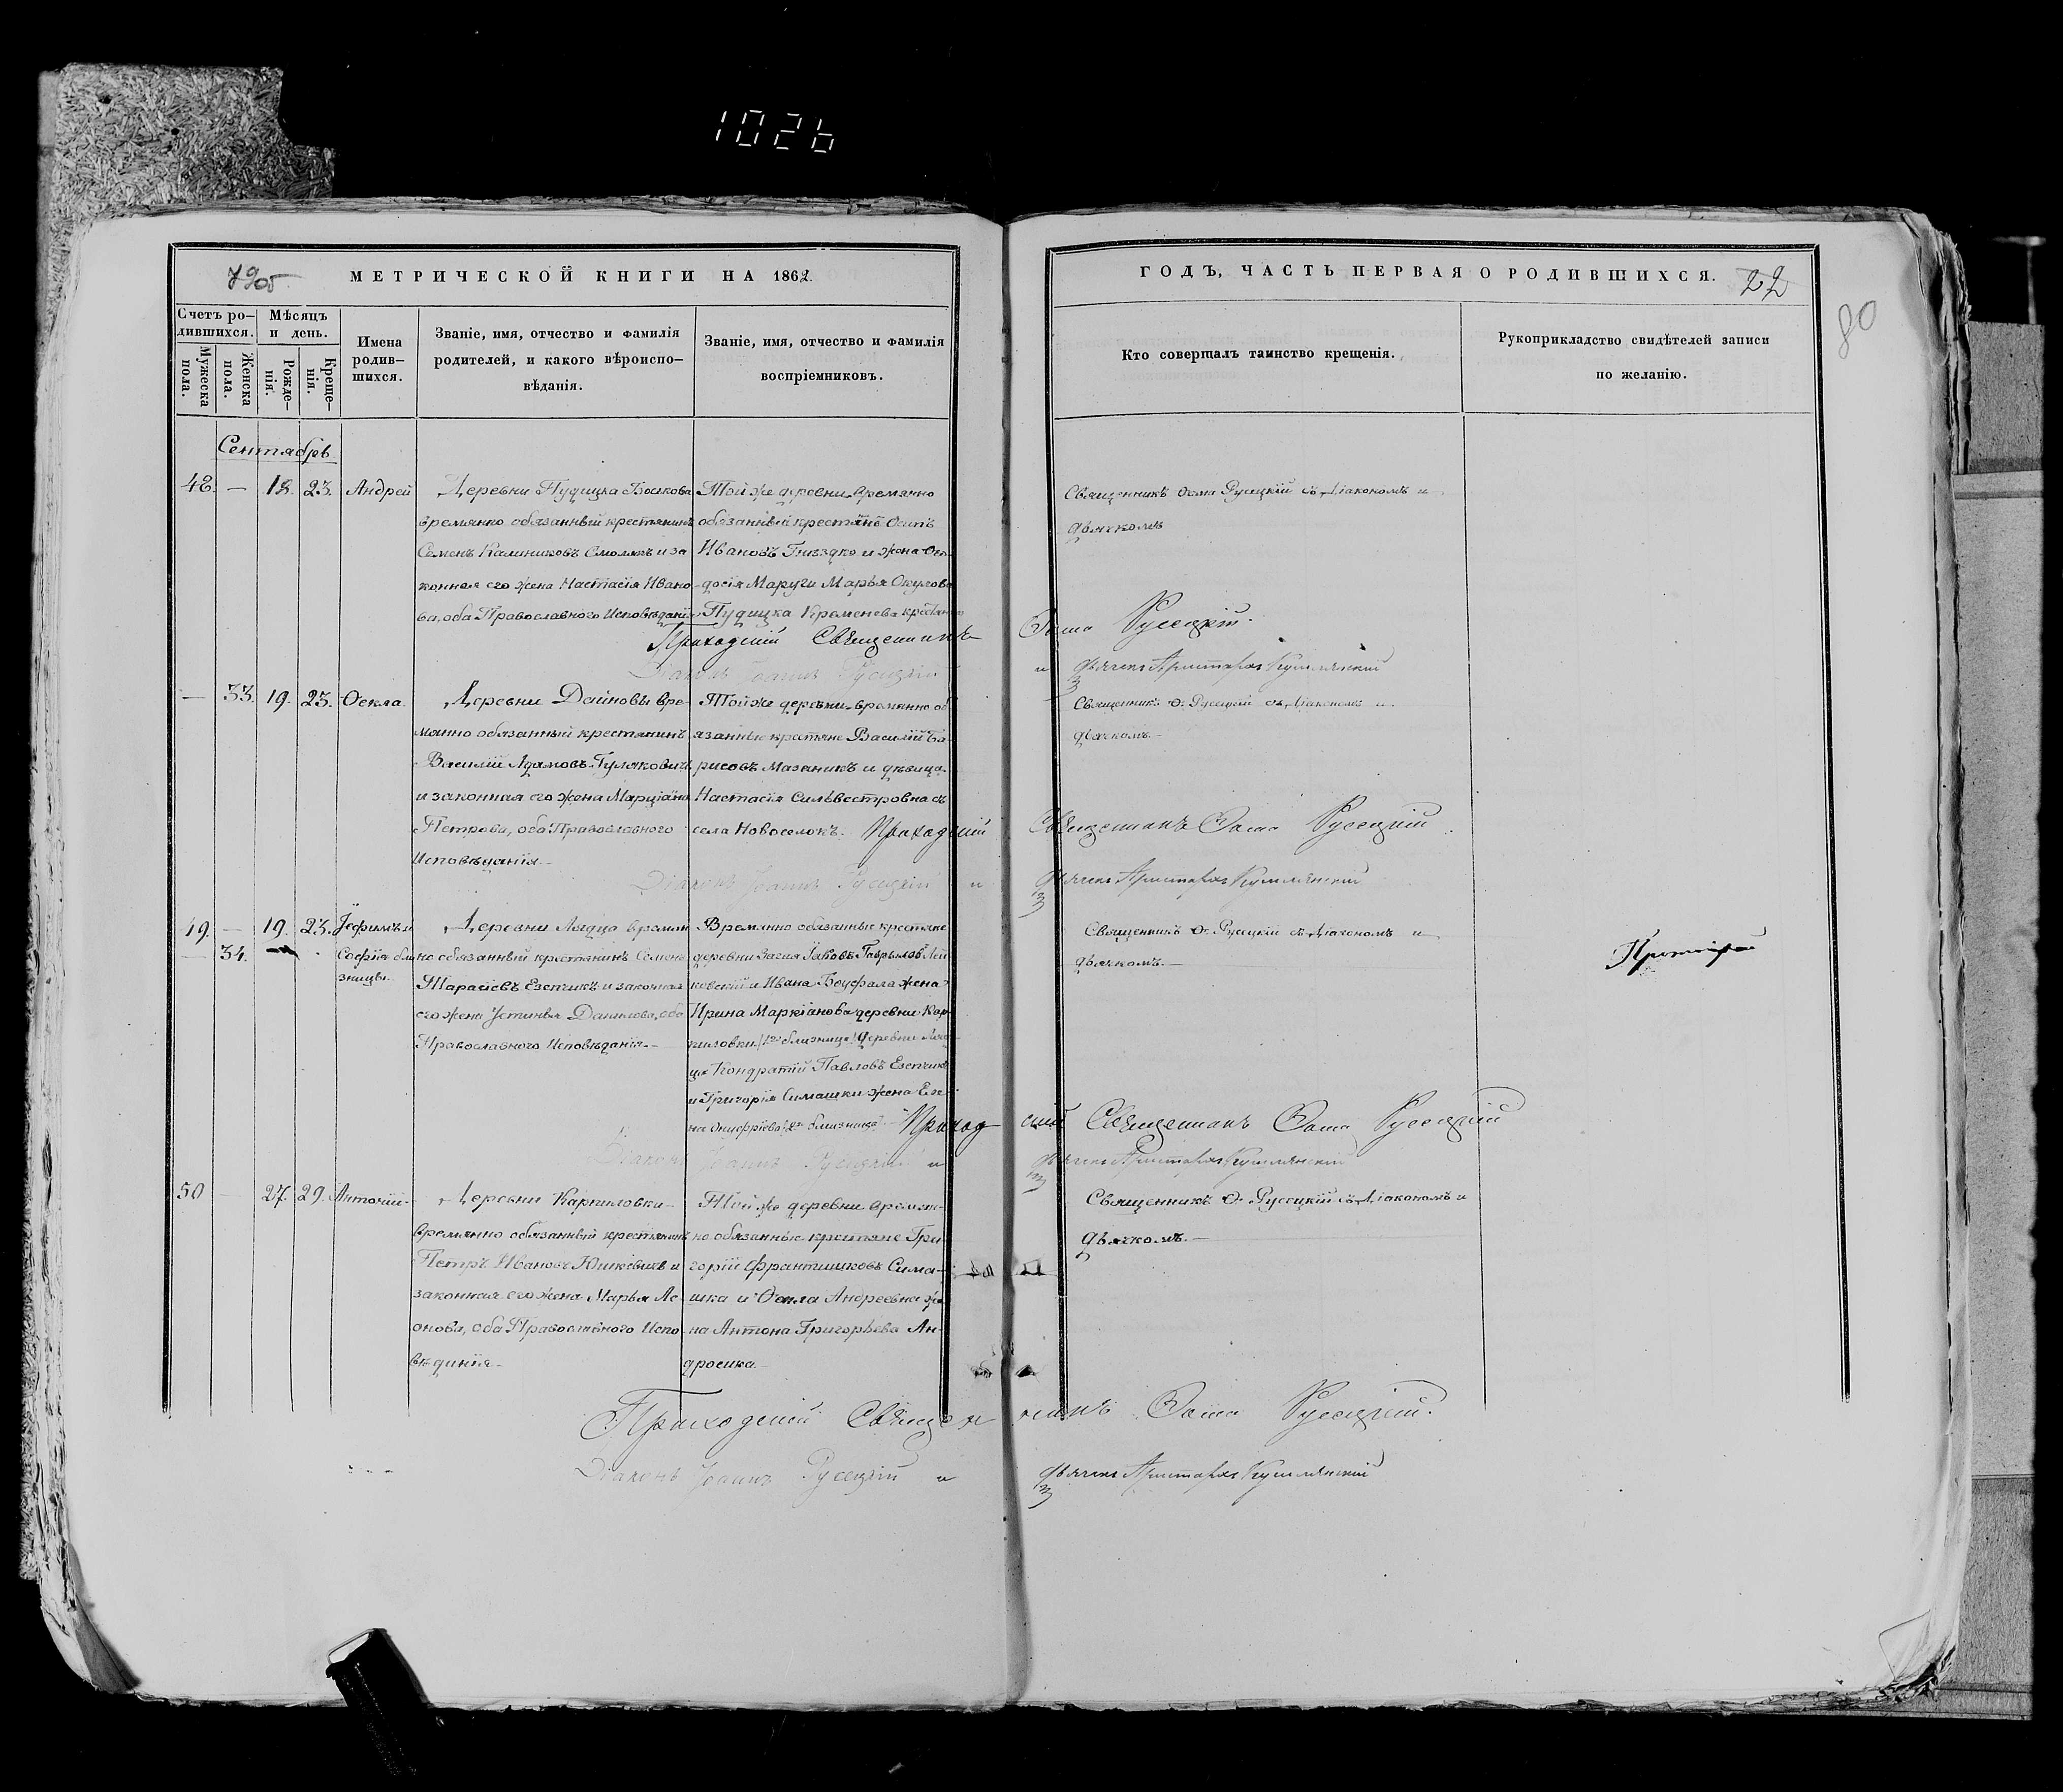 1026
795
МЕТРИЧЕСКОЙ КНИГИ НА 1862.
ГОДЪ, ЧАСТЬ ПЕРВАЯ О РОДИВШИХСЯ.
22
80
Счетъ ро-
дившихся.
Мужеска
пола.
Женска
пола.
Мѣсяцъ
и день.
Рожде-
нія.
Креще-
нія.
Имена
родив-
шихся.
Званіе, имя, отчество и фамилія
родителей, и какого вѣроиспо-
вѣданія.
Званіе, имя, отчество и фамилія
воспріемниковъ.
Кто совершалъ таинство крещенія.
Рукоприкладство свидѣтелей записи
по желанію.
Сентябрь
48. — 18. 23. Андрей
Деревни Пудицка
времянно обязанный крестянинъ
Семенъ Калиниковъ Смолякъ и за
конная его жена Настасія Ивано-
ва, оба Православного Исповѣданія
Той же деревни времянно
обязанный крестяне Осипъ
Ивановъ Гнѣздко и жена Ѳео-
досія Маруги Марья Окулова
Пудицка
Священникъ Ѳома Русецкій съ Діакономъ и
дьячкомъ
Приходскій Священникъ Ѳома Русецкій.
Діаконъ Іоаннъ Русецкій и дьячекъ Аристархъ
— 33. 19. 23. Ѳекла.
Деревни Дайновы вре-
мянно обязанный крестянинъ
Василій Адамовъ Гуляковичъ
и законная его жена Марціана
Петрова, оба Православного
Исповѣданія.—
Той же деревни времянно об
язанные крестяне Василій Бо-
рисовъ Мазаникъ и дѣвица
Настасія Сильвестровна съ
села Новоселокъ.
Священникъ Ѳ. Русецкій съ Діакономъ и
дьячкомъ.—
Приходскій Священникъ Ѳома Русецкій
Діаконъ Іоаннъ Русецкій и дьячекъ Аристархъ
49. — 19. 23. Іефимъ и
— 34. Софія бли
зницы.
Деревни времян
но обязанный крестянинъ Семенъ
Тарасіевъ Езепчикъ и законная
его жена Устинья Данилова, оба
Православного Исповѣданія.—
Времянно обязанные крестяне
деревни Іаковъ Гаврыловъ Лей
ковскій и Ивана жена
Ирина Маркіанова деревни Кар-
пиловки /1ая близница/ деревни
Кондратій Павловъ Езепчикъ
и Григорія Симашки жена Еле-
на Онуфріева 2я близница
Священникъ Ѳ. Русецкій съ Діакономъ и
дьячкомъ.—
Протоіерей
Приходскій Священникъ Ѳома Русецкій
Діаконъ Іоаннъ Русецкій и дьячекъ Аристархъ
50 — 27. 29. Антоній.
Деревни Карпиловки
времянно обязанный крестянинъ
Петръ Ивановъ и
законная его жена Марья Ле-
онова, оба Православного Испо-
вѣданія.
Той же деревни времян-
но обязанные крестяне Гри-
горій Францишковъ Сима-
шка и Ѳекла Андреевна же-
на Антона Григорьева Ан-
дросика.—
Священникъ Ѳ. Русецкій съ Діакономъ и
дьячкомъ.—
Приходскій Священникъ Ѳома Русецкій.
Діаконъ Іоаннъ Русецкій и дьячекъ Аристархъ